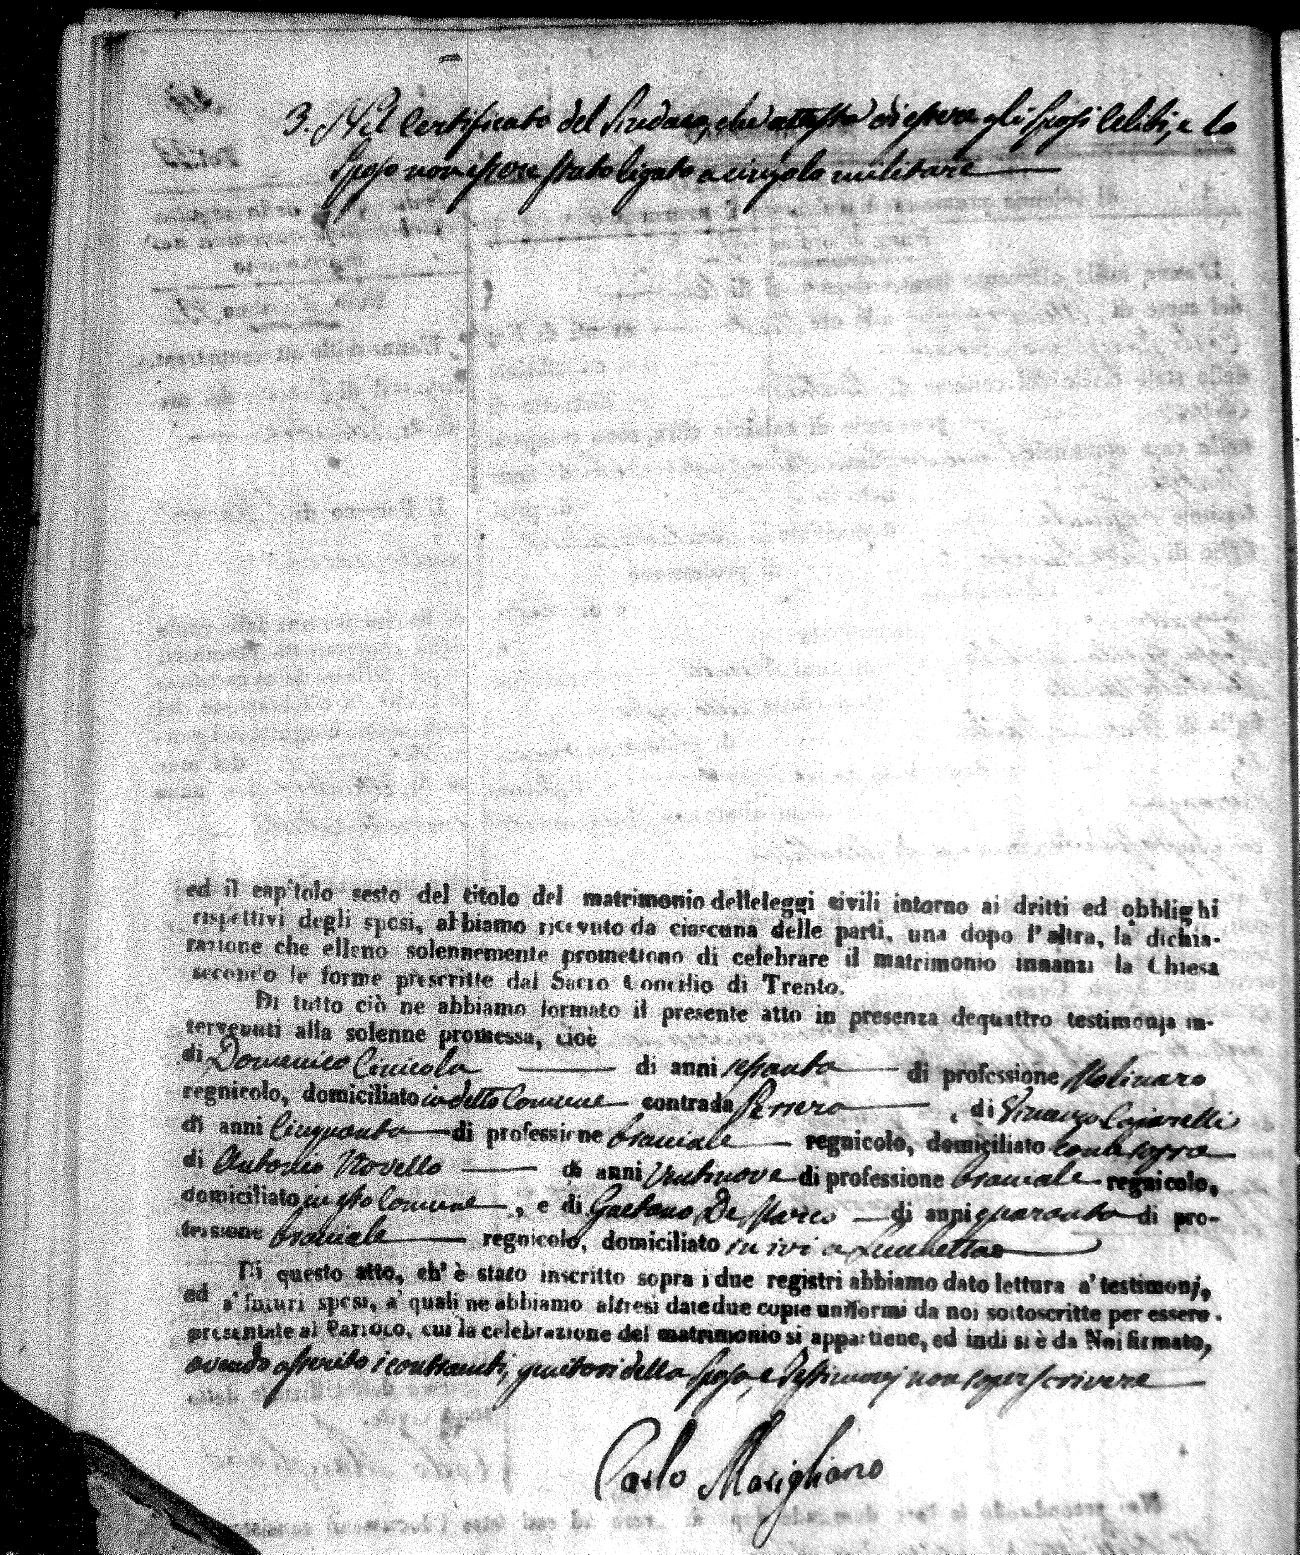 3. Nel Certificato del Sindaco, che attesta di essere gli sposi celibi, e lo
sposo non essere stato ligato a vincolo militare
ed il cap'tolo sesto del titolo del matrimonio delleleggi civili intorno ai dritti ed obblighi
rispettivi degli spesi, abbiamo ricevuto da ciascuna delle parti, una dopo l'altra, la dichia-
razione che elleno solennemente promettono di celebrare il matrimonio innanzi la Chiesa
secondo le forme prescritte dal Sacro Concilio di Trento.
Di tutto ciò ne abbiamo formato il presente atto in presenza dequattro testimonja in-
tervenuti alla solenne promessa, cioè
di Domenico Cinicola di anni sessanta di professione Molinaro
regnicolo, domiciliato in detto Comune contrada Ferrero, di Vincenzo
di anni Cinquanta di professione bracciale regnicolo, domiciliato come sopra
di Antonio Novello di anni Ventinove di professione bracciale regnicolo,
domiciliato in sto Comune, e di Gaetano De Marco di anni quaranta di pro-
fessione bracciale regnicolo, domiciliato in ivi a
Di questo atto, ch'è stato inscritto sopra i due registri abbiamo dato lettura a' testimonj,
ed a' futuri spesi, a' quali ne abbiamo altresi datedue copie uniformi da noi sottoscritte per essere
presentate al Parroco, cui la celebrazione del matrimonio si appartiene, ed indi si è da Noi firmato,
avendo asserito i contraenti, genitori della sposa, e testimonj non saper scrivere
Carlo Marigliano